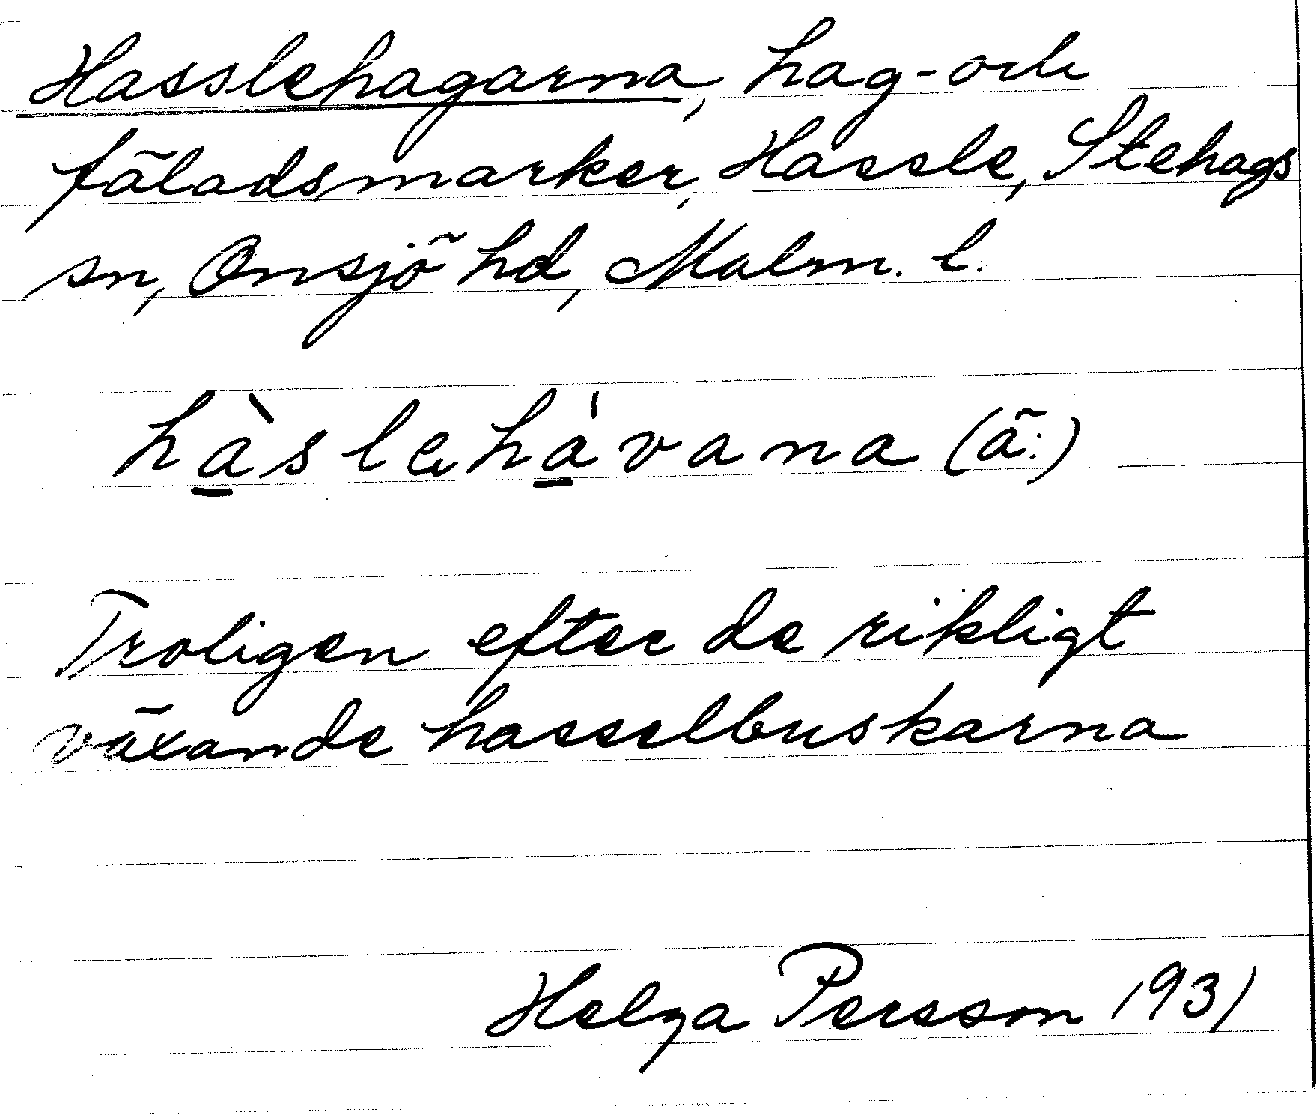 Hasslehagarna, hag- och
fäladsmarker, Hassle, Stehags
sn, Onsjö hd, Malm. l.
hàslehávana (ä:)
Troligen efter de rikligt
växande hasselbuskarna
Helga Persson 1931